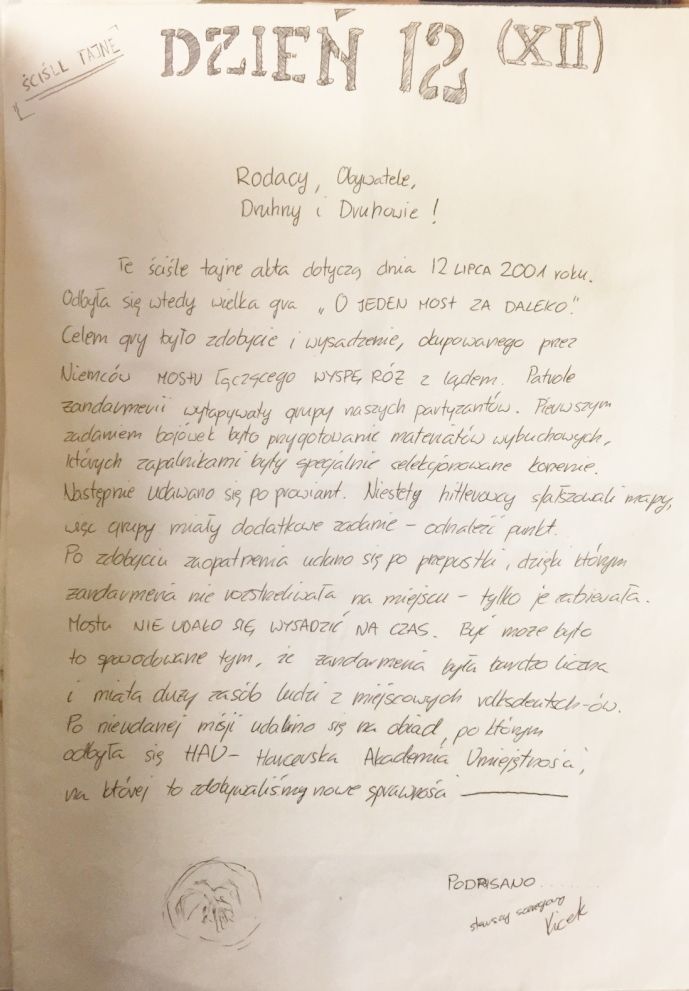 ŚCIŚLE TAJNE
DZIEŃ 12 (XII)
Rodacy, Obywatele,
Druhny i Druhowie!
Te ściśle tajne akta dotyczą dnia 12 LIPCA 2001 roku.
Odbyła się wtedy wielka gra „O JEDEN MOST ZA DALEKO".
Celem gry było zdobycie i wysadzenie, okupowanego przez
Niemców MOSTU łączącego WYSPĘ RÓŻ z lądem. Patrole
żandarmerii wyłapywały grupy naszych partyzantów. Pierwszym
zadaniem bojówek było przygotowanie materiałów wybuchowych,
których zapalnikami były specjalnie selekcjonowane korzenie.
Następnie udawano się po prowiant. Niestety hitlerowcy sfałszowali mapy,
więc grupy miały dodatkowe zadanie - odnaleźć punkt.
Po zdobyciu zaopatrzenia udano się po przepustki, dzięki którym
żandarmeria nie rozstrzeliwała na miejscu - tylko je zabierała.
MOSTU NIE UDAŁO SIĘ WYSADZIĆ NA CZAS. Być może było
to spowodowane tym, że żandarmeria była bardzo liczna
i miała duży zasób ludzi z miejscowych volksdeutsch-ów.
Po nieudanej misji udaliśmy się na obiad, po którym
odbyła się HAU - Harcerska Akademia Umiejętności,
na której to zdobywaliśmy nowe sprawności
PODPISANO
Kicek